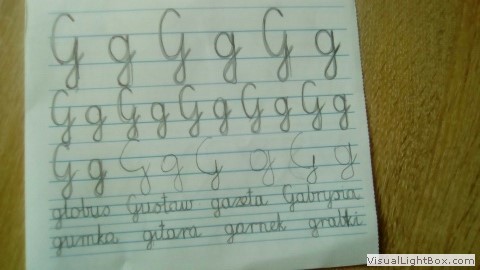 G g G g G g
G g G g G g G g G g
G g G g G g G g
globus Gustaw gazeta Gabrysia
gumka gitara garnek grabki
VisualLightBox.com